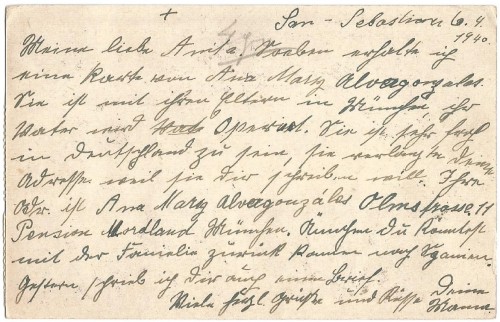 San-Sebastian 6.4.
1940.
Meine liebe Anita. Soeben erhalte ich
eine Karte von Ana Mary Alvagonzales.
Sie ist mit ihren Eltern in München, ihr
Vater wird Operiert. Sie ist sehr froh
in Deutschland zu sein, sie verlangte deine
Adresse weil sie dir schreiben will. Ihre
Adr. ist Ana Mary Alvagonzáles Olmstrasse. 11
Pension Nordland München. du
mit der Familie zurück nach Spanien.
Gestern schrieb ich Dir auch einen Brief.
Viele herzl. Grüsse und Küsse Deine
Mama.